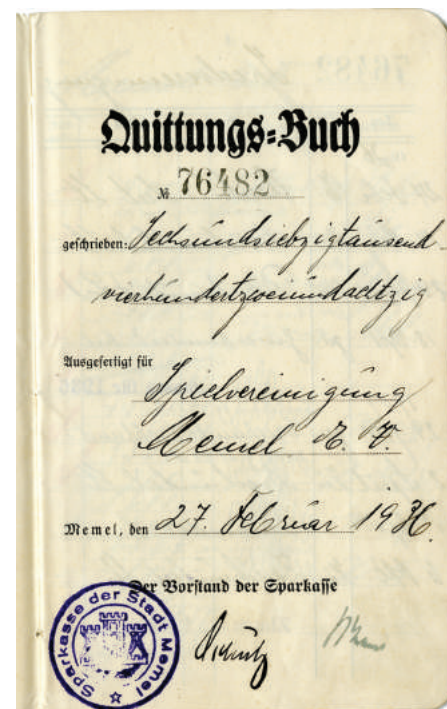 Quittungs-Buch
№ 76482
geschrieben: Sechsundsiebzigtausend-
vierhundertzweiundachtzig
Ausgefertigt für
Spielvereinigung
Memel E. V.
Memel, den 27. Februar 1936.
Der Vorstand der Sparkasse
Sparkasse der Stadt Memel